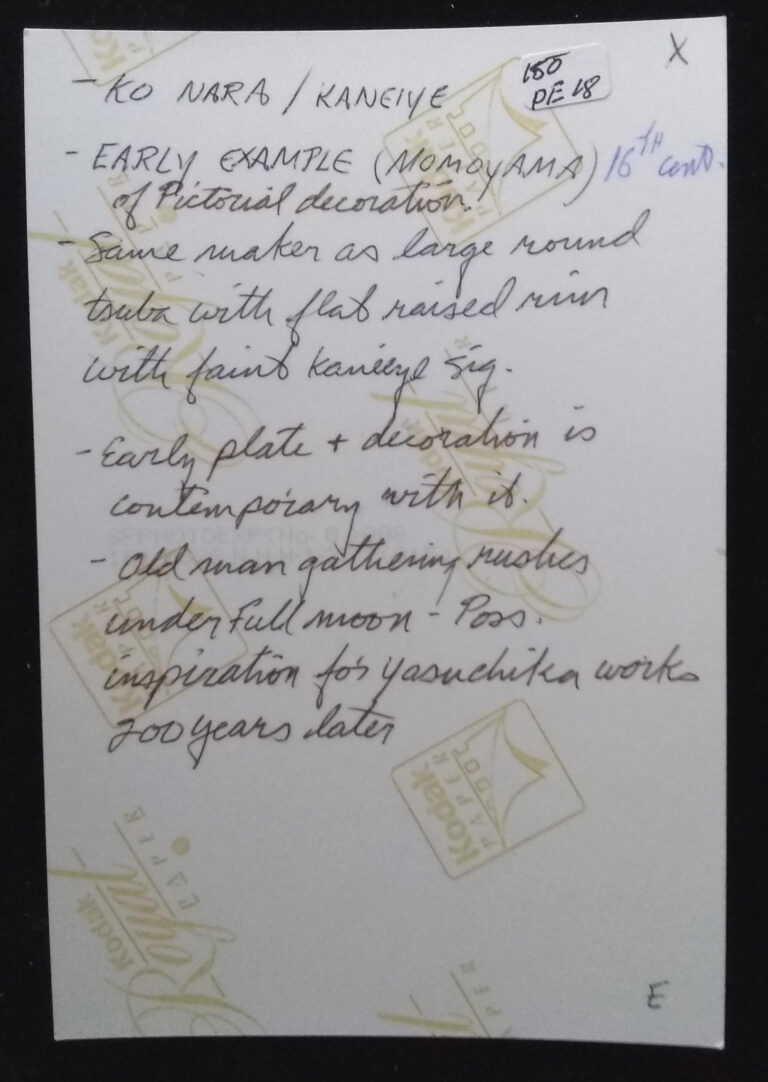 X
150
PE 18
- KO NARA / KANEIYE
- EARLY EXAMPLE (MOMOYAMA) 16TH cent.
of Pictorial decoration.
- Same maker as large round
tsuba with flat raised rim
with faint Kaneiye sig.
- Early plate + decoration is
contemporary with it.
- Old man gathering rushes
under Full moon - Poss.
inspiration for Yasuchika works
200 years later
E
Kodak
PAPER
Kodak
Royal
PAPER